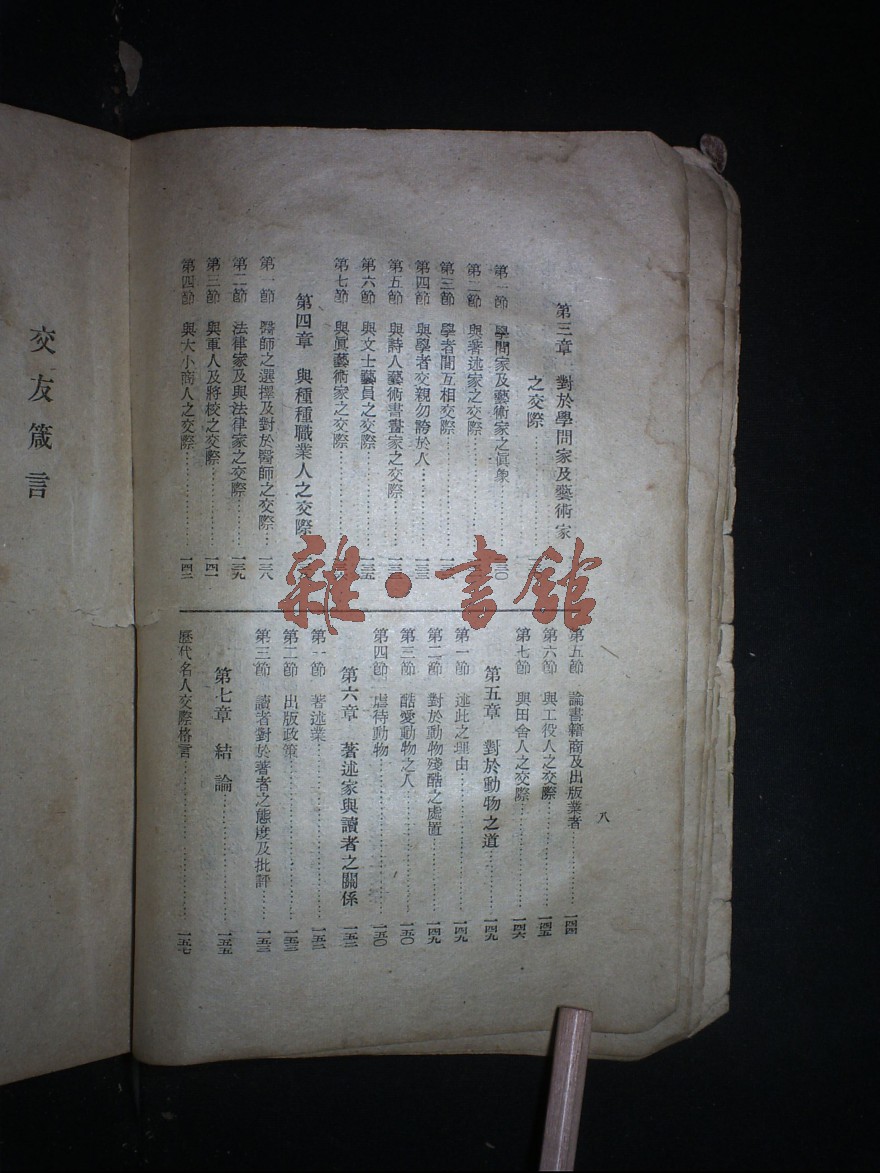 第三章 對於學問家及藝術家
之交際
第一節 學問家及藝術家之眞象
第二節 與著述家之交際
第三節 學者間互相交際
第四節 與學者交親勿誇於人
第五節 與詩人藝術書畫家之交際
第六節 與文士藝員之交際
第七節 與眞藝術家之交際
第四章 與種種職業人之交際
第一節 醫師之選擇及對於醫師之交際 一三八
第二節 法律家及與法律家之交際 一三九
第三節 與軍人及將校之交際 一四一
第四節 與大小商人之交際 一四二
第五節 論書籍商及出版業者 一四四
第六節 與工役人之交際 一四五
第七節 與田舍人之交際 一四六
第五章 對於動物之道 一四九
第一節 述此之理由 一四九
第二節 對於動物殘酷之處置 一四九
第三節 酷愛動物之人 一五〇
第四節 虐待動物 一五〇
第六章 著述家與讀者之關係 一五二
第一節 著述業 一五二
第二節 出版政策 一五三
第三節 讀者對於著者之態度及批評 一五三
第七章 結論 一五五
歷代名人交際格言 一五七
八
交友箴言
雜·書館